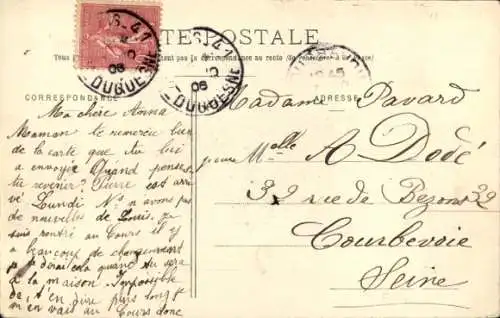 CARTE POSTALE
CORRESPONDANCE
ADRESSE
6-41
06
DUQUESNE
6-41
06
DUQUESNE
Ma chère Anna
Maman te remercie bien
de la carte que tu lui
a envoyée Quand penses
tu revenir? Pierre est arri
vé Lundi Ns n avons pas
de nouvelles de Louis. Je
suis rentré au Cours il y
a beaucoup de changement
je te dirai cela quand tu sera
à la maison Impossible
de t'en dire plus long je
m'en vais au Cours donc
Madame Pavard
pour Melle A Dodé
32 rue de Bezons 32
Courbevoie
Seine